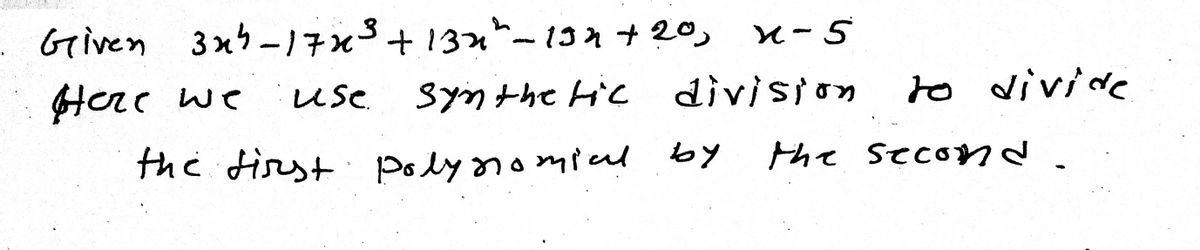 Given 3x⁴-17x³+13x²-19x+20, x-5
Here we use synthetic division to divide
the first polynomial by the second.